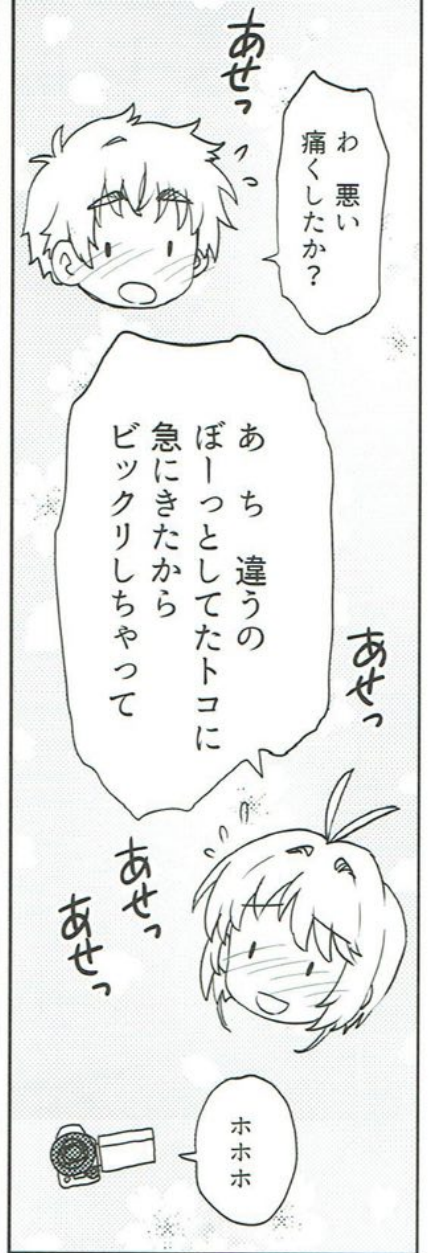 あせっ
わ 悪い
痛くしたか?
あ ち 違うの
ぼーっとしてたトコに
急にきたから
ビックリしちゃって
あせっ
あせっ
あせっ
ホホホ